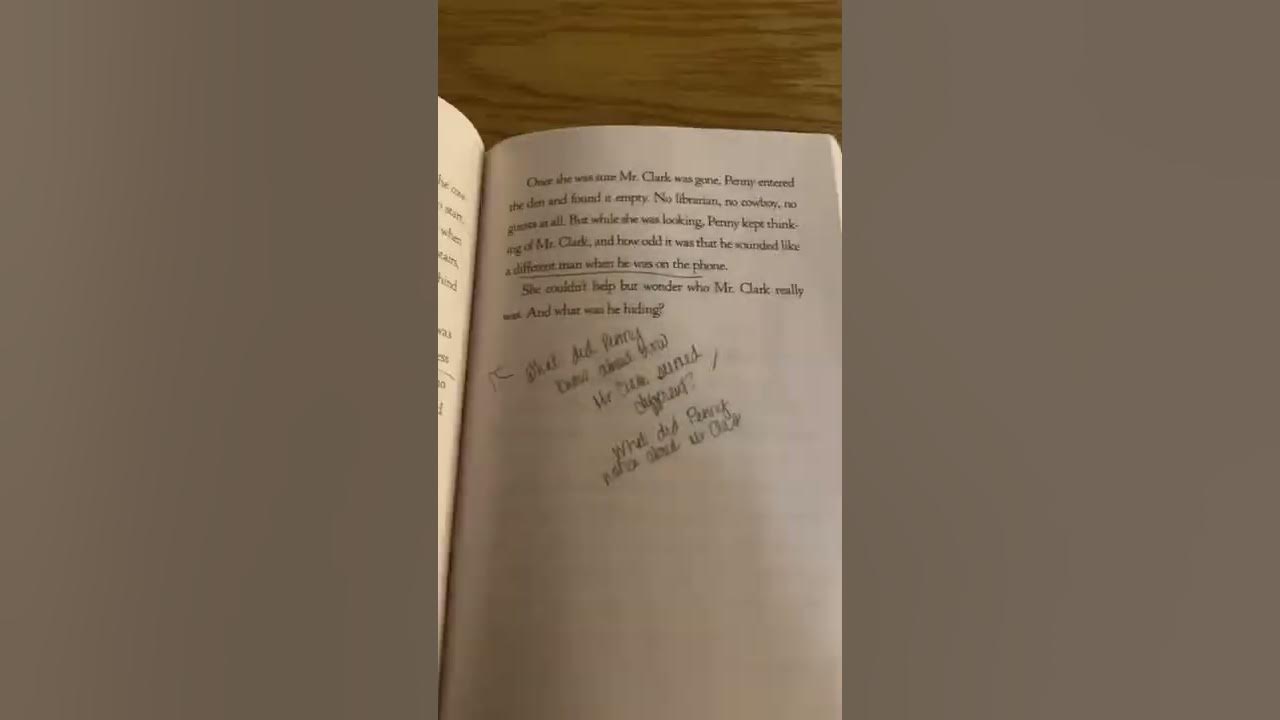 he cow
stair,
when
stairs,
hind
was
ess
Once she was sure Mr. Clark was gone, Penny entered
the den and found it empty. No librarian, no cowboy, no
guests at all. But while she was looking, Penny kept think-
ing of Mr. Clark, and how odd it was that he sounded like
a different man when he was on the phone.
She couldn't help but wonder who Mr. Clark really
was. And what was he hiding?
What did Penny
know about how
Mr Clark seemed
different?
What did Penny
notice about Mr Clark